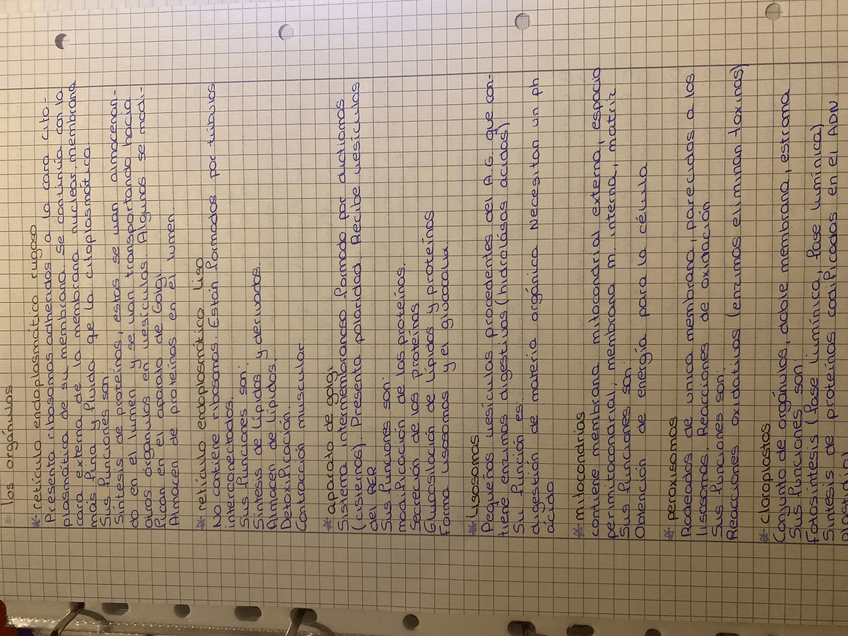 los orgánulos
* retículo endoplasmático rugoso
Presenta ribosomas adheridos a la cara cito-
plasmática de su membrana. se continúa con la
cara externa de la membrana nuclear. membrana
más fina y fluida qe la citoplasmática.
Sus funciones son:
Síntesis de proteínas, estas se van almacenan-
do en el lumen y se van transportando hacia
otros orgánulos en vesículas. Algunas se modi-
fican en el aparato de Golgi
Almacén de proteínas en el lumen.
* retículo endoplasmático liso
No contiene ribosomas. Están formados por túbulos
interconectados.
Sus funciones son:
Síntesis de lípidos y derivados.
Almacén de lípidos.
Detoxificación.
Contracción muscular
* aparato de golgi
Sistema intermembranoso formado por dictiomas
(cisternas). Presenta polaridad. Recibe vesículas
del RER
Sus funciones son:
modificación de las proteínas.
Secreción de las proteínas
Glucosilación de lípidos y proteínas
Forma lisosomas y el glucocalix.
* lisosomas
Pequeñas vesículas procedentes del A.G. que con-
tiene enzimas digestivas (hidrolasas ácidas)
Su función es:
digestión de materia orgánica. Necesitan un ph
ácido
* mitocondrias
contiene membrana mitocondrial externa, espacio
perimitocondrial, membrana m. interna, matriz.
Sus funciones son:
Obtención de energía para la célula
* peroxisomas
Rodeados de unica membrana, parecidos a los
lisosomas. Reacciones de oxidación
Sus funciones son:
Reacciones oxidativas (enzimas eliminan toxinas)
* cloroplastos
Conjunto de orgánulos, doble membrana, estroma
Sus funciones son:
Fotosíntesis (fase lumínica, fase lumínica)
Síntesis de proteínas codificadas en el ADN
plastidial